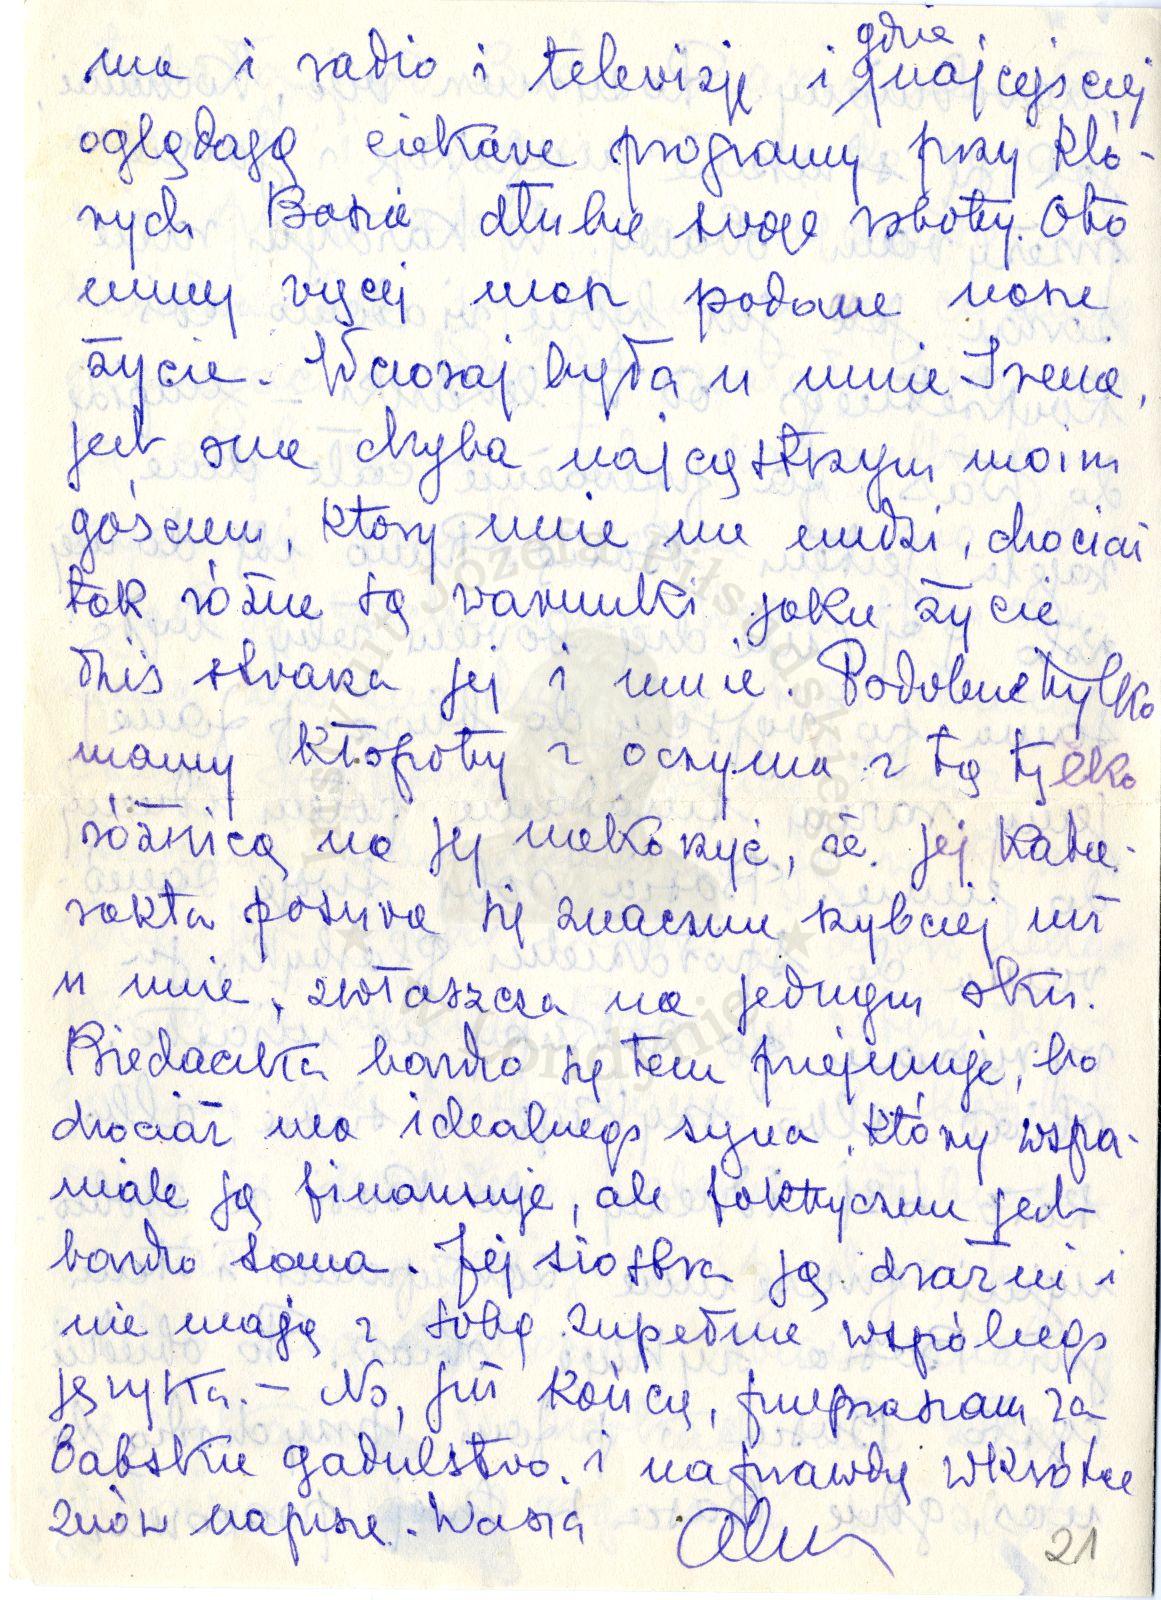 ma i radio i televizję i gdzie najczęściej
oglądają ciekawe programy przy któ-
rych Basia dłubie swoje roboty. Oto
mniej więcej masz podane nasze
życie. Wczoraj była u mnie Irena,
jest ona chyba najczęstszym moim
gościem, który mnie nie nudzi, chociaż
tak różne są warunki jakie życie
dziś stwarza jej i mnie. Podobne tylko
mamy kłopoty z oczyma z tą tylko
różnicą na jej niekorzyść, że jej kata-
rakta posuwa się znacznie szybciej niż
u mnie, zwłaszcza na jednym oku.
Biedaczka bardzo się tem przejmuje, bo
chociaż ma idealnego syna, który wspa-
niale ją finansuje, ale faktycznie jest
bardzo sama. Jej siostra ją drażni i
nie mają z sobą zupełnie wspólnego
języka. – No, już kończę, przepraszam za
babskie gadulstwo i naprawdę wkrótce
znów napiszę. Wasza
21
Instytut Józefa Piłsudskiego
w Londynie